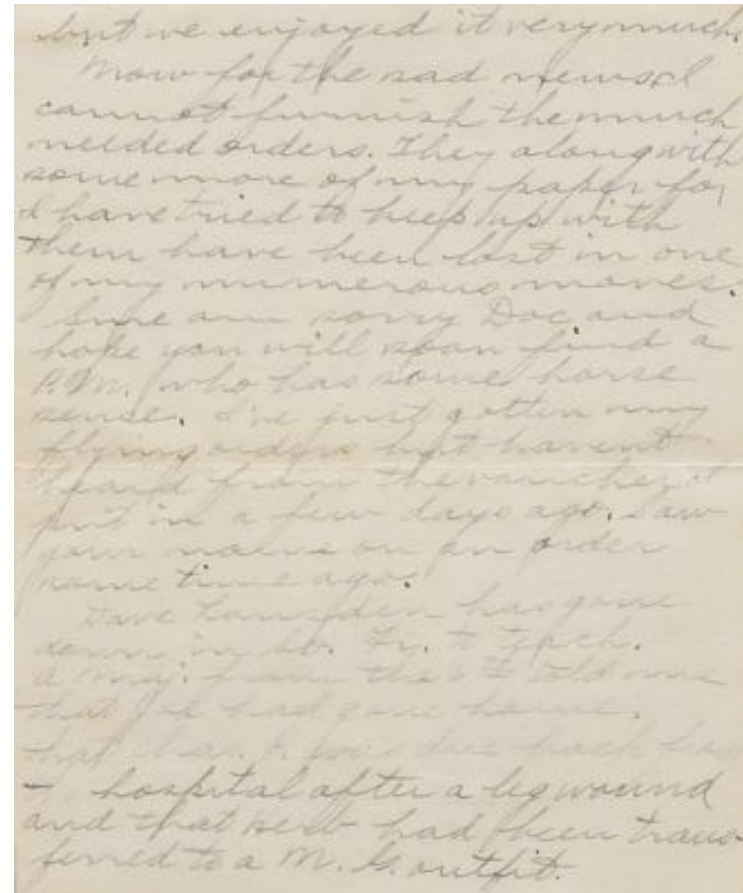 but we enjoyed it very much.
Now for the sad news. I
cannot furnish the much
needed orders. They along with
some more of my paper for
I have tried to keep up with
them have been lost in one
of my numerous moves.
Sure am sorry Doc and
hope you will soon find a
P.M. who has some horse
sense. I've just gotten my
flying orders but havent
heard from the voucher I
put in a few days ago. Saw
your name on an order
some time ago.
Dave has gone
down in So. Fr. to teach.
a Maj. from the 6th told me
that Joe had gone home.
that was due back from
hospital after a leg wound
and that had been trans-
ferred to a M. G. outfit.